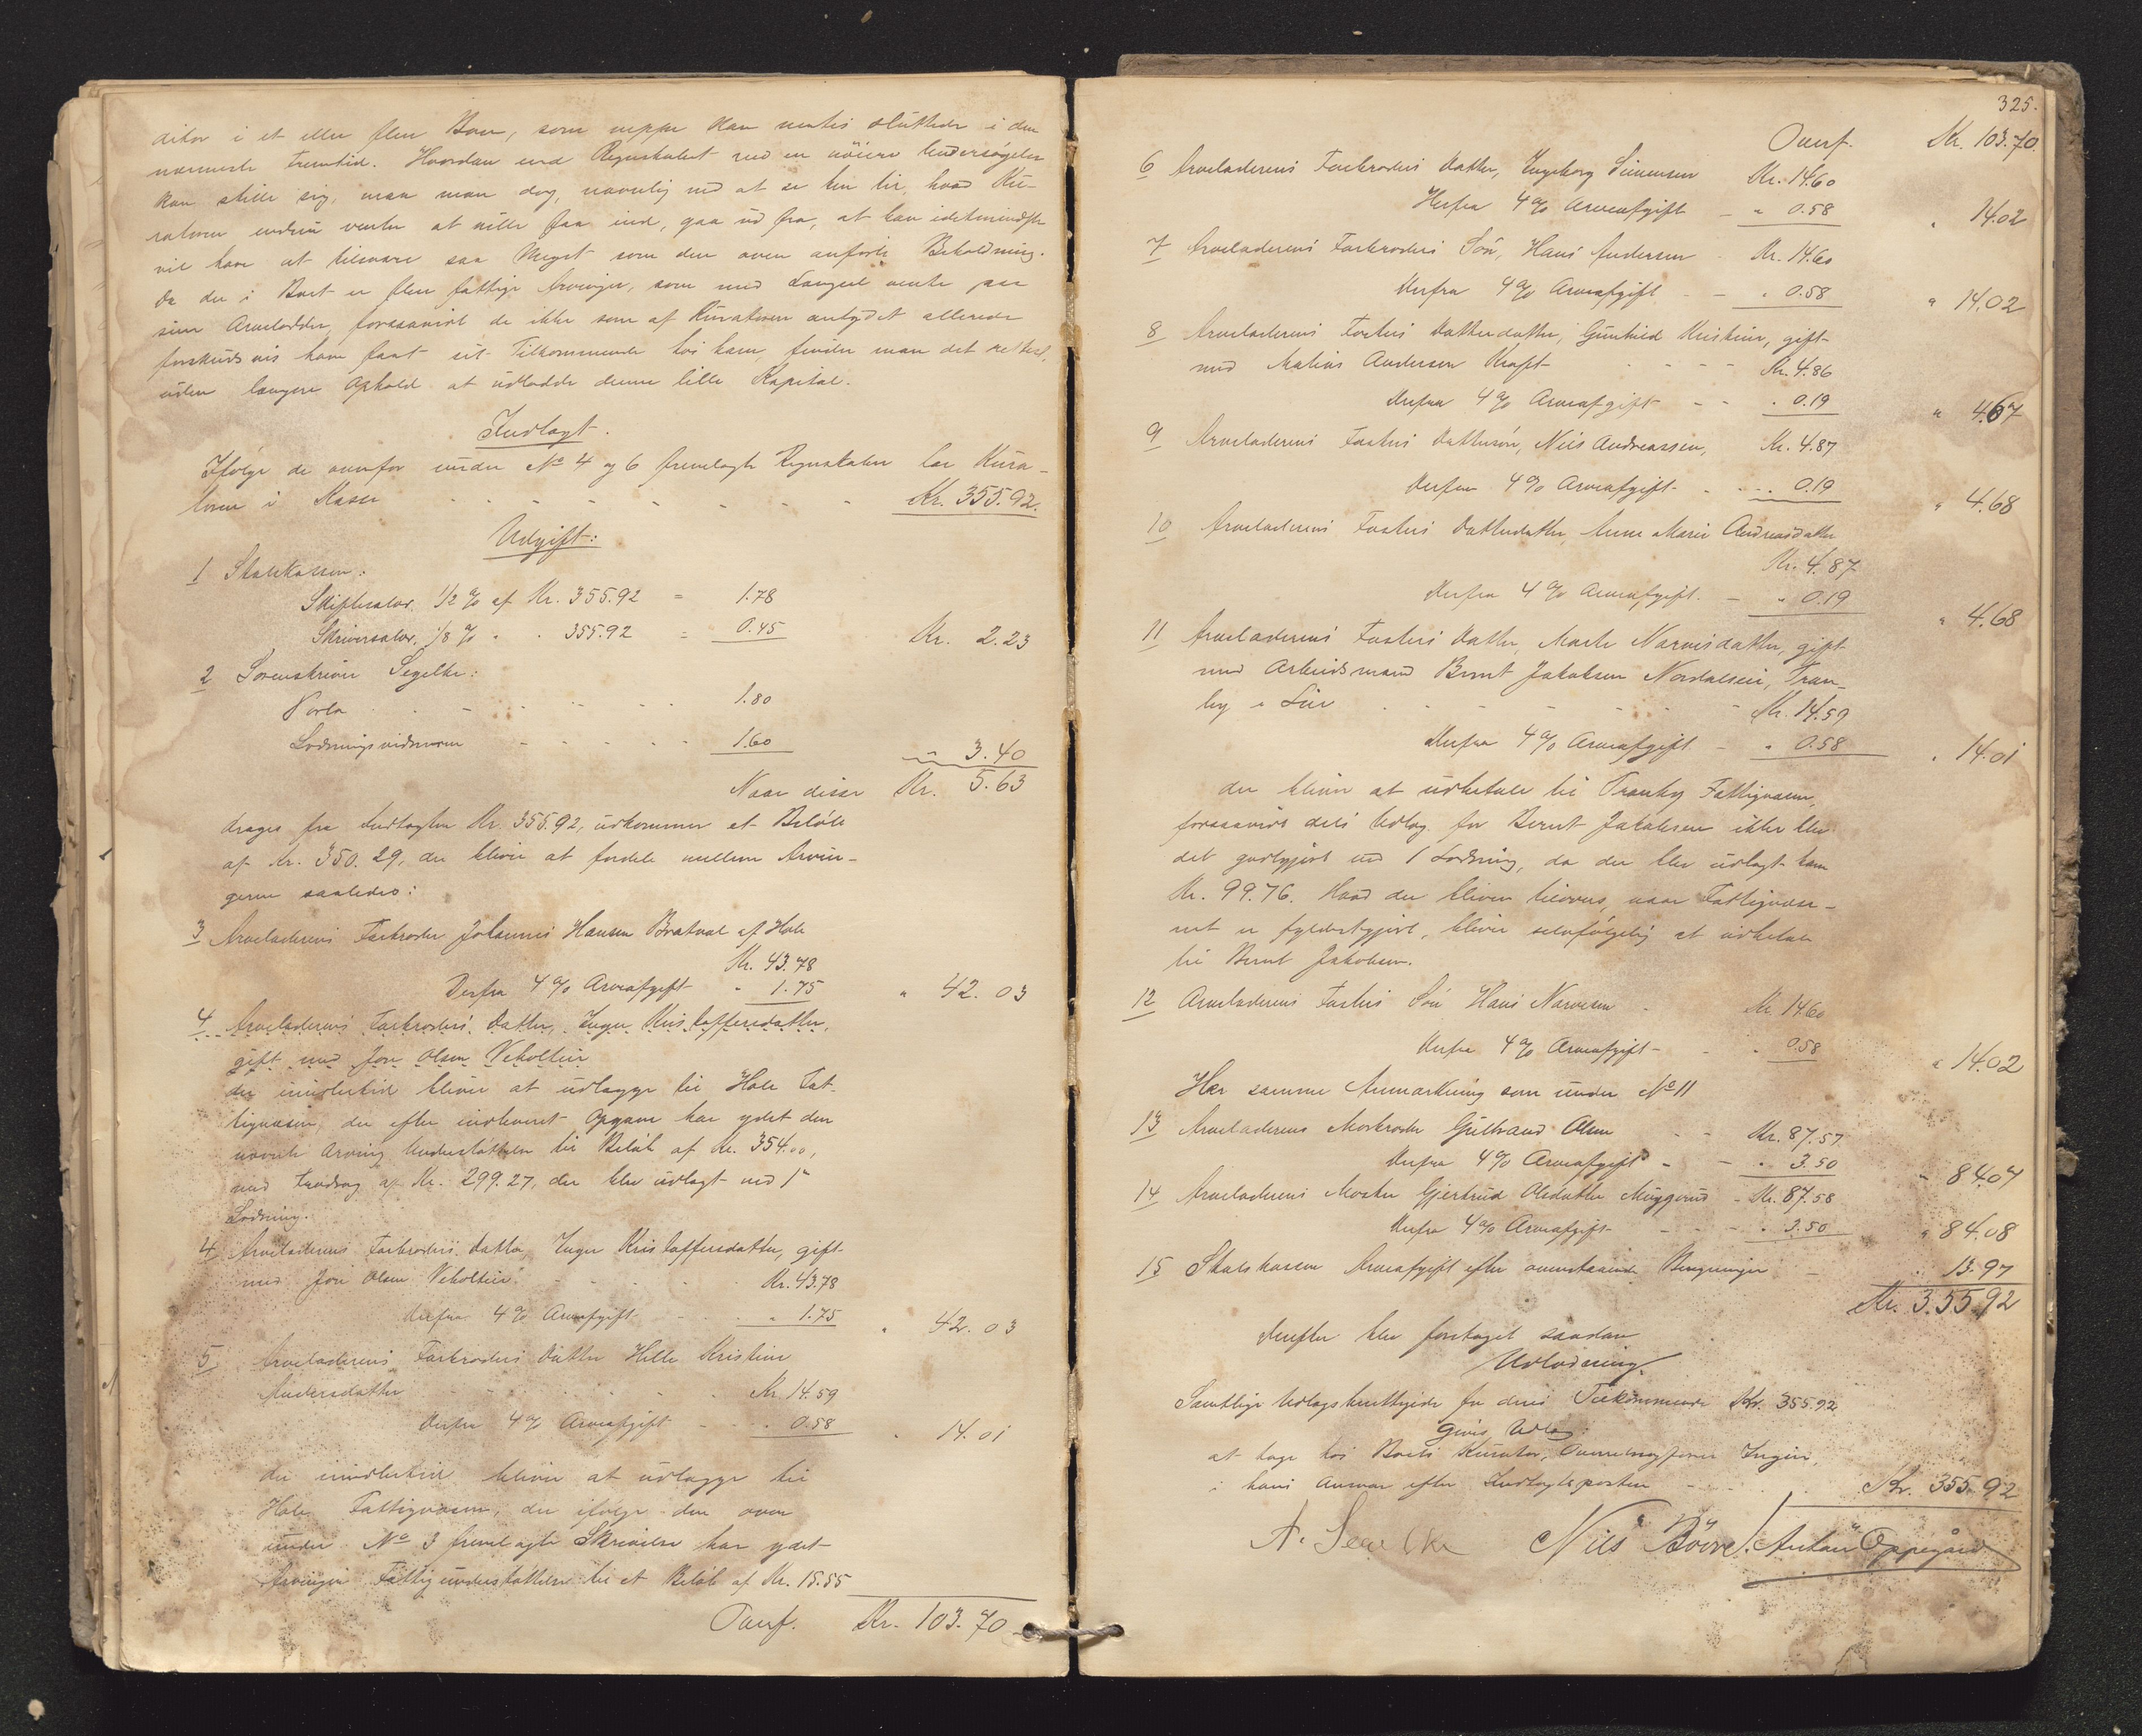 ditor i et eller flere Boer, som neppe kan ventes sluttede i den
nærmeste Fremtid. Hvordan end Regnskabet ved en nöiere Undersögelse
kan stille sig, maa man dog, navnlig ved at se hen til, hvad Ku-
ratoren endnu venter at ville faa ind, gaa ud fra, at han idetmindste
vil have at tilsvare saa Meget som den oven anförte Beholdning.
Da der i Boet er flere fattige Arvinger, som med Længsel vente paa
sine Arvelodder, forsaavidt de ikke som af Kuratoren antydet allerede
forskudsvis have faaet sit Tilkommende hos ham, finder man det rettest,
uden længere Ophold at udlodde denne lille Kapital.
Indtægt.
Ifölge de ovenfor under No 4 og 6 fremlagte Regnskaber har Kura-
toren i Kasse Kr. 355.92.
Udgift:
1 Statskassen:
Skiftesalær 1/2 % af Kr. 355.92 = 1.78
Skriversalær 1/8 % " " 355.92 = 0.45 Kr. 2.23
2 Sorenskriver Segelke:
Porto 1.80
Lodningsvidnerne 1.60 " 3.40
Naar disse Kr. 5.63
drages fra Indtægten Kr. 355.92, udkommer et Belöb
af Kr. 350.29, der bliver at fordele mellem Arvin-
gerne saaledes:
3 Arveladerens Farbroder Johannes Hansen Bratval af Hole
Kr. 43.78
Derfra 4 % Arveafgift " 1.75 " 42.03
4 Arveladerens Farbroders Datter, Inger Kristoffersdatter,
gift med Jon Olsen Veholteie
der imidlertid bliver at udlægge til Hole Fat-
tigvæsen, der efter indleveret Opgave har ydet den
nævnte Arving Understöttelse til Belöb af Kr. 354.00,
med Fradrag af Kr. 299.27, der blev udlagt ved 1ste
Lodning.
4 Arveladerens Farbroders Datter Inger Kristoffersdatter, gift
med Jon Olsen Veholteie Kr. 43.78
Derfra 4 % Arveafgift " 1.75 " 42.03
5 Arveladerens Farbroders Datter Helle Kristine
Andersdatter Kr. 14.59
Derfra 4 % Arveafgift " 0.58 " 14.01
der imidlertid bliver at udlægge til
Hole Fattigvæsen, der ifölge den oven
under No 3 fremlagte Skrivelse har ydet
Arvingen Fattigunderstöttelse til et Belöb af Kr. 15.55
Overf. Kr. 103.70
325.
Overf. Kr. 103.70.
6 Arveladerens Farbroders Datter, Ingeborg Simensen Kr. 14.60
Herfra 4 % Arveafgift " 0.58 " 14.02
7 Arveladerens Farbroders Sön, Hans Andersen Kr. 14.60
Derfra 4 % Arveafgift " 0.58 " 14.02
8 Arveladerens Fasters Datterdatter, Gunhild Kristine, gift
med Matias Andersen Kraft Kr. 4.86
Derfra 4 % Arveafgift " 0.19 " 4.67
9 Arveladerens Fasters Dattersön, Nils Andreassen, Kr. 4.87
Derfra 4 % Arveafgift 0.19 " 4.68
10 Arveladerens Fasters Datterdatter, Anne Marie Andreasdatter
Kr. 4.87
Derfra 4 % Arveafgift. " 0.19 " 4.68
11 Arveladerens Fasters Datter, Marte Narvesdatter, gift
med Arbeidsmand Bernt Jakobsen Nordalseie, Tran-
by i Lier Kr. 14.59
Derfra 4 % Arveafgift " 0.58 " 14.01
der bliver at udbetale til Tranby Fattigvæsen,
forsaavidt dets Udlæg for Bernt Jakobsen ikke blev
det godtgjort ved 1 Lodning, da der blev udlagt ham
Kr. 99.76. Hvad der bliver tilovers, naar Fattigvæse-
net er fyldestgjort, bliver selvfölgelig at udbetale
til Bernt Jakobsen.
12 Arveladerens Fasters Sön Hans Narvesen Kr. 14.60
Derfra 4 % Arveafgift " 0.58 " 14.02
Her samme Anmærkning som under No 11
13 Arveladerens Morbroder Gulbrand Olsen Kr. 87.57
Derfra 4 % Arveafgift " 3.50 " 84.07
14 Arveladerens Moster Gjertrud Olsdatter Muggerud Kr. 87.58
Derfra 4 % Arveafgift " 3.50 " 84.08
15 Statskassen Arveafgift efter ovenstaaende Beregninger 13.97
Kr. 355.92
Derefter blev foretaget saadan
Udlodning.
Samtlige Udlægsberettigede for deres Tilkommende Kr. 355.92
gives Udlæg:
at tage hos Boets Kurator, Overretssagförer
i hans Ansvar efter Indtægtsposten Kr. 355.92
A. Segelke Nils Anton Oppegård